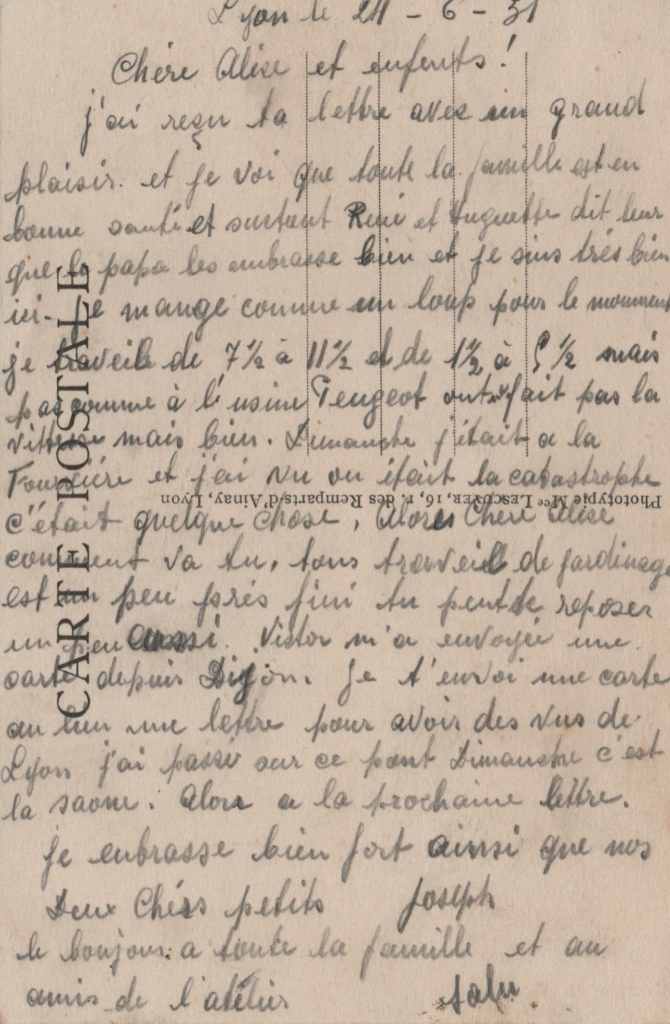 Lyon le 24 - 6 - 31
Chére Alise et enfents!
j'ai reçu ta lettre avec un grand
plaisir. et je voi que toute la famille est en
bonne santé et surtout René et Huguette dit leur
que le papa les embrasse bien et je suis trés bien
ici. je mange comme un loup pour le momment
je traveile de 7 1/2 à 11 1/2 et de 1 1/2 à 5 1/2 mais
pas comme à l'usine Peugeot ont fait pas la
vittesse mais bien. Dimanche j'était a la
Fourviére et j'ai vu ou était la catastrophe
c'était quelque chose, Alors Chere Alise
comment va tu, tons traveil de jardinage
est un peu prés fini tu peut te reposer
un peu aussi. Victor m'a envoyée une
carte depuis Dijon. Je t'envoi une carte
au lieu une lettre pour avoir des vus de
Lyon j'ai passé sur ce pont Dimanche c'est
la saone. Alors a la prochaine lettre.
je enbrasse bien fort ainsi que nos
Deux Chérs petits Joseph
le bonjour a toute la famille et au
amis de l'atélier salu.
CARTE POSTALE
Phototypie Mce LESCUYER, 16, r. des Remparts-d'Ainay, Lyon